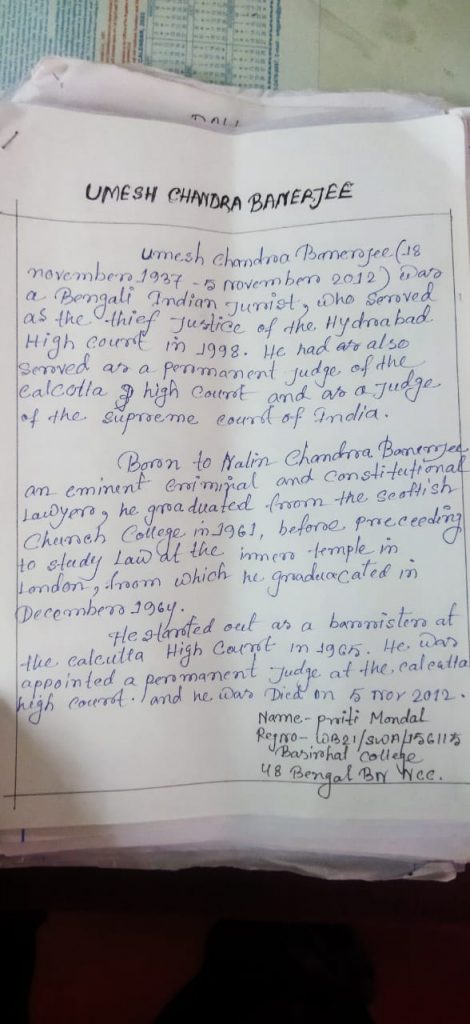 UMESH CHANDRA BANERJEE
Umesh Chandra Banerjee (18
november 1937 - 5 november 2012) was
a Bengali Indian Jurist, who served
as the thief Justice of the Hydrabad
High court in 1998. He had as also
served as a permanent judge of the
calcotta high court and as a judge
of the supreme court of India.
Born to Nalin Chandra Banerjee
an eminent criminal and constitutional
Lawyer, he graduated from the scottish
Church College in 1961, before preceeding
to study Law at the inner temple in
London, from which he graduacated in
December 1964.
He started out as a barrister at
the calcutta High Court in 1965. He was
appointed a permanent Judge at the calcatta
high court. and he was Died on 5 nov 2012.
Name - priti Mondal
Regno - WB21/SWA/1561175
Basirhat College
48 Bengal BN NCC.